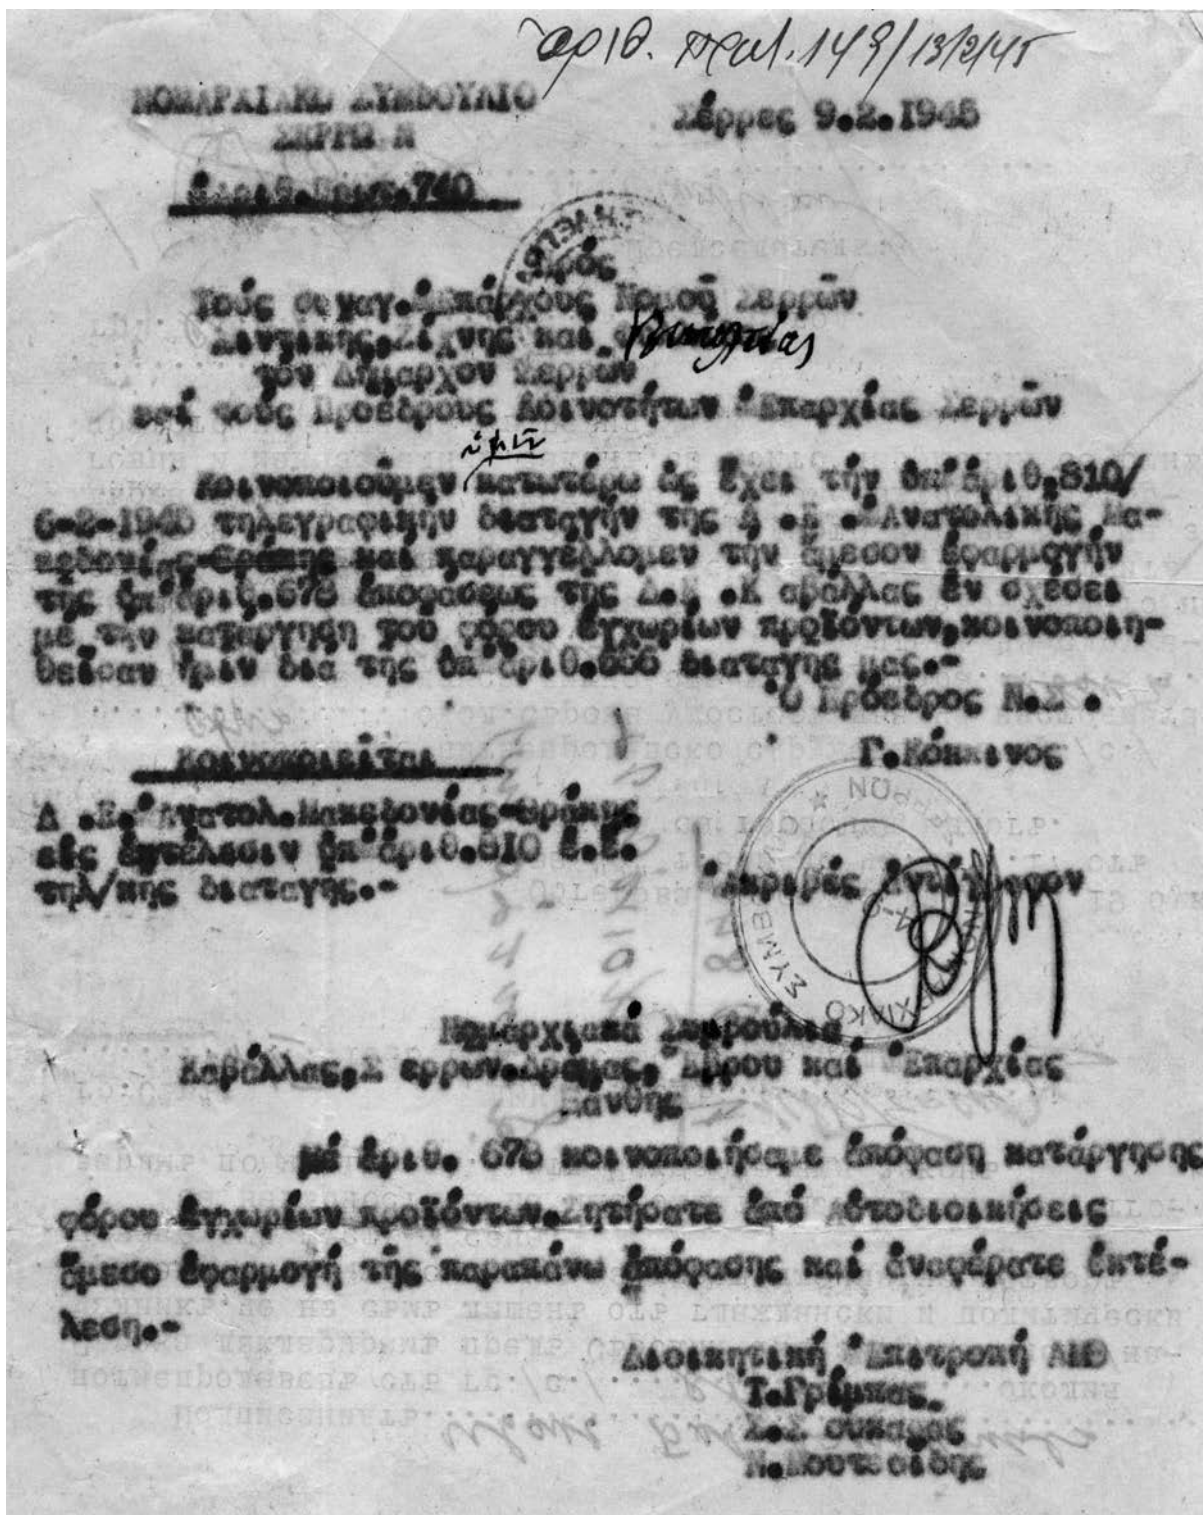 αριθ. πρωτ. 149/13/2/45
ΝΟΜΑΡΧΙΑΚΟ ΣΥΜΒΟΥΛΙΟ
ΣΕΡΡΩ Ν
Σέρρες 9.2.1945
Ἀριθ.Πρωτ.740
Πρός
Τούς συναγ.Ἐπάρχους Νομοῦ Σερρῶν
Σιντικῆς,Ζίχνης καί Βισαλτίας
τον Δήμαρχον Σερρῶν
καί τούς Προέδρους Κοινοτήτων Ἐπαρχίας Σερρῶν
ὑμῖν
Κοινοποιοῦμεν κατωτέρω ὡς ἔχει τήν ὑπ'ἀριθ.810/
6-2-1945 τηλεγραφικήν διαταγήν τῆς Δ .Ε .Ἀνατολικῆς Μα-
κεδονίας-Θράκης καί παραγγέλλομεν τήν ἄμεσον ἐφαρμογήν
τῆς ὑπ'ἀριθ.678 ἀποφάσεως τῆς Δ.Ε .Κ αβάλλας ἐν σχέσει
μέ τήν κατάργηση τοῦ φόρου ἐγχωρίων προϊόντων,κοινοποιη-
θεῖσαν ὑμῖν διά τῆς ὑπ'ἀριθ. διαταγῆς μας.-
Ὁ Πρόεδρος Ν.Σ .
Γ.Κόκκινος
Κοινοποιεῖται
Δ .Ε.Ἀνατολ.Μακεδονίας-Θράκης
εἰς ἐκτέλεσιν ὑπ'ἀριθ.810 ἐ.ἔ.
τηλ/κῆς διαταγῆς.-
Ἀκριβές Ἀντίγραφον
ΝΟΜΑΡΧΙΑΚΟ ΣΥΜΒ ΣΕΡΡΩΝ
Νομαρχιακά Συμβούλια
Καβάλλας,Σ ερρων.Δράμας, Ἕβρου καί Ἐπαρχίας
Ξάνθης
Μέ ἀριθ. 678 κοινοποιήσαμε ἀπόφαση κατάργησης
φόρου ἐγχωρίων προϊόντων.Ζητήσατε ἀπό Αὐτοδιοικήσεις
ἄμεσο ἐφαρμογή τῆς παραπάνω ἀπόφασης καί ἀναφέρατε ἐκτέ-
λεση.-
Διοικητική Ἐπιτροπή ΑΜΘ
Τ.Γρίμπας
Σ.Σ ουκαρᾶς
Ν.Μουτεσίδης